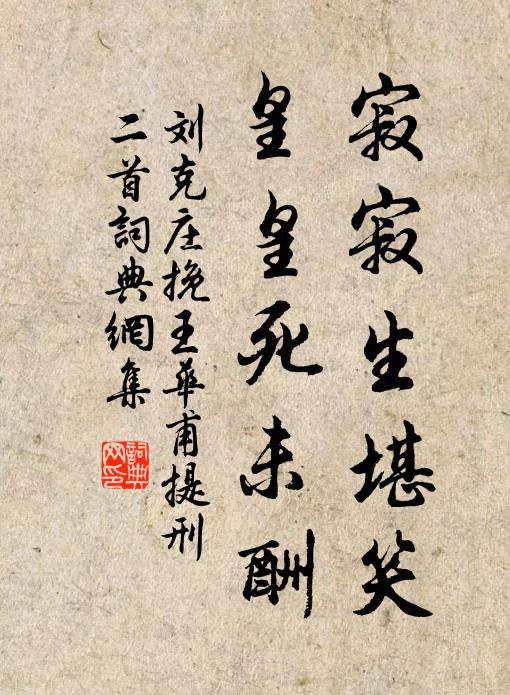 寂寂生堪笑
皇皇死未酬
刘克庄挽王華甫提刑
二首詞典網集
詞典
网印